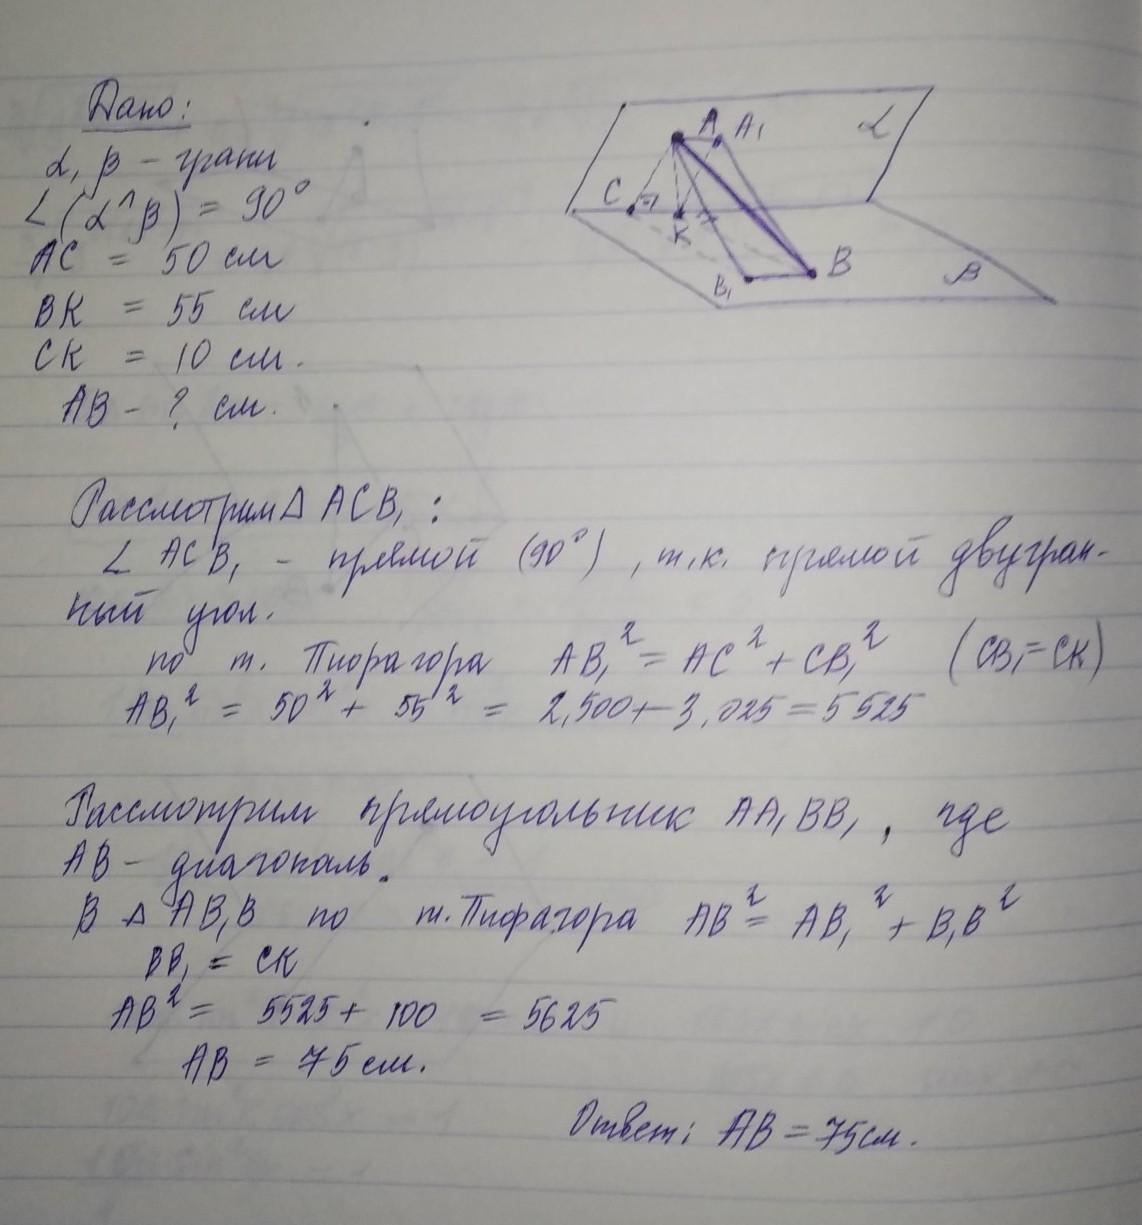 Дано:
α, β – грани
∠(α^β) = 90°
AC = 50 см
BK = 55 см
CK = 10 см.
AB – ? см.
A A₁ α
C K
B₁ B β
Рассмотрим Δ ACB₁ :
∠ ACB₁ – прямой (90°) , т.к. прямой двугран-
ный угол.
по т. Пифагора AB₁² = AC² + CB₁² (CB₁ = CK)
AB₁² = 50² + 55² = 2,500 + 3,025 = 5525
Рассмотрим прямоугольник AA₁BB₁ , где
AB – диагональ.
В Δ AB₁B по т. Пифагора AB² = AB₁² + B₁B²
BB₁ = CK
AB² = 5525 + 100 = 5625
AB = 75 см.
Ответ: AB = 75 см.